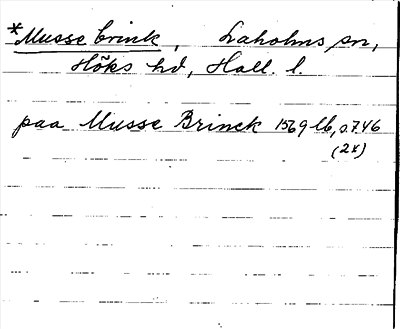 *Musse brink, Laholms sn,
Höks hd, Hall. l.
paa Musse Brinck 1569 lb, s.746
(2x)